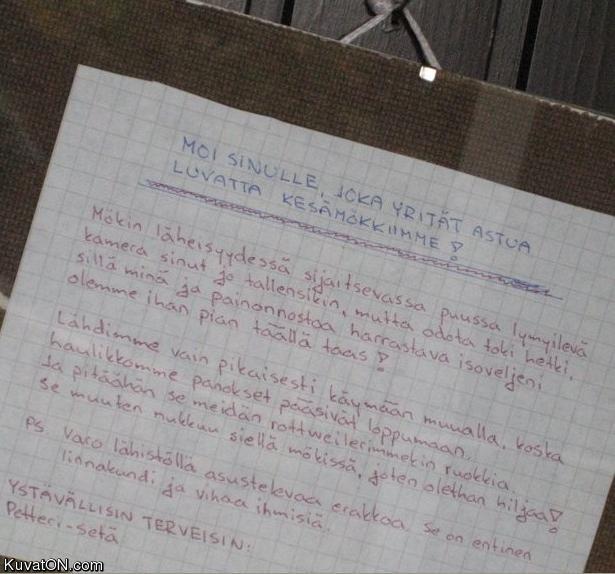 MOI SINULLE, JOKA YRITÄT ASTUA
LUVATTA KESÄMÖKKIIMME!
Mökin läheisyydessä sijaitsevassa puussa lymyilevä
kamera sinut jo tallensikin, mutta odota toki hetki,
sillä minä ja painonnostoa harrastava isoveljeni
olemme ihan pian täällä taas!
Lähdimme vain pikaisesti käymään muualla, koska
haulikkomme panokset pääsivät loppumaan.
Ja pitäähän se meidän rottweilerimmekin ruokkia.
Se muuten nukkuu siellä mökissä, joten olethan hiljaa!
PS. Varo lähistöllä asustelevaa erakkoa. Se on entinen
linnakundi ja vihaa ihmisiä.
YSTÄVÄLLISIN TERVEISIN:
Petteri-setä
KuvatON.com